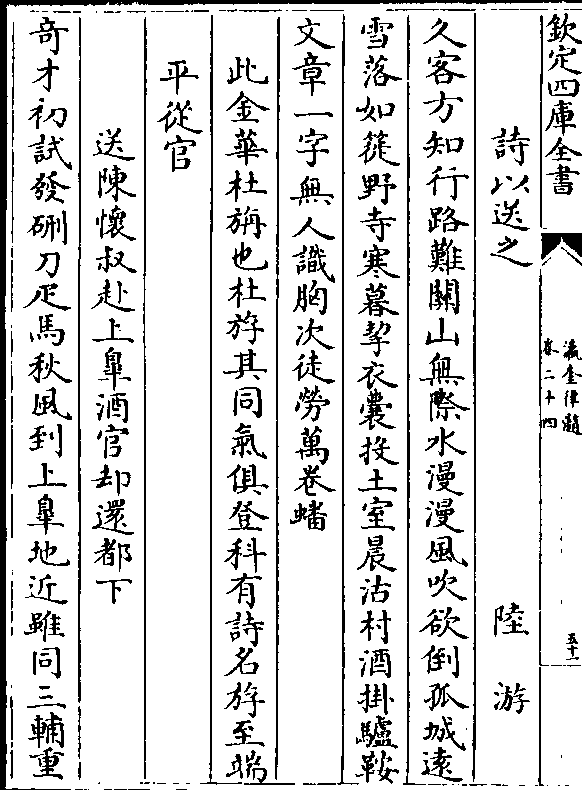 欽定四庫全書
瀛奎律髓
卷二十四
五十一
詩以送之 陸游
久客方知行路難關山無際水漫漫風吹欲倒孤城逺
雪落如簁野寺寒暮挈衣囊投土室晨沽村酒掛驢鞍
文章一字無人識胸次徒勞萬卷蟠
此金華杜旃也杜斿其同氣俱登科有詩名斿至端
平從官
送陳懷叔赴上臯酒官却還都下
竒才初試發硎刀疋馬秋風到上臯地近雖同三輔重